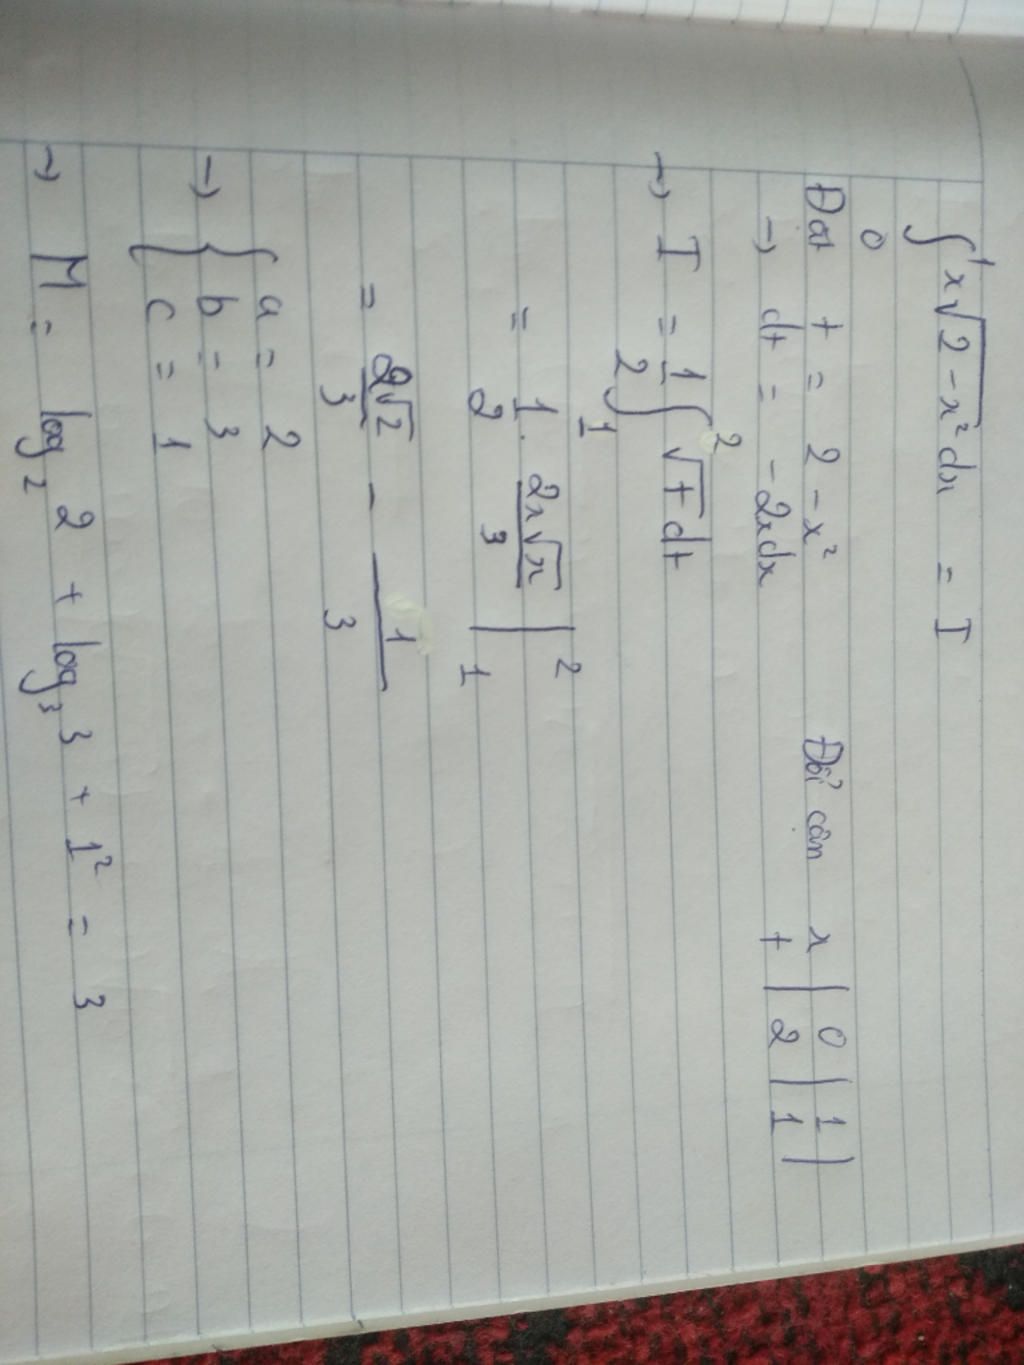 ∫₀¹ x√(2-x²) dx = I
Đặt t = 2 - x² Đổi cân x | 0 | 1 |
→ dt = -2xdx t | 2 | 1
→ I = 1/2 ∫₁² √t dt
= 1/2 . 2x√x/3 |₁²
= 2√2/3 - 1/3
→ { a = 2
b = 3
c = 1
→ M = log₂ 2 + log₃ 3 + 1² = 3